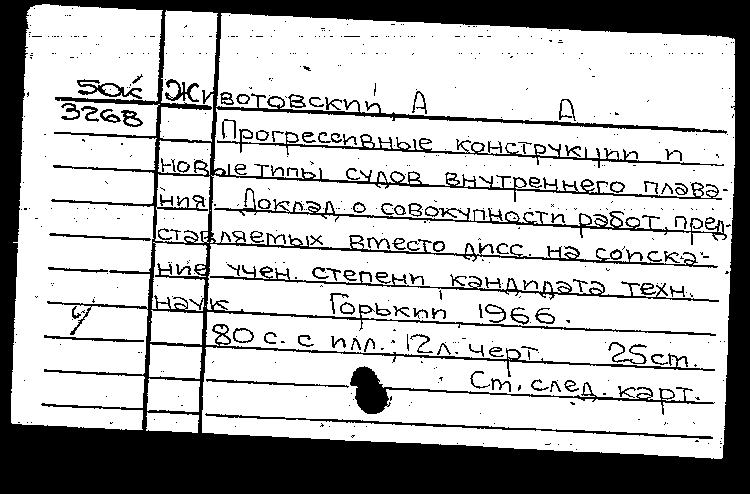 50к Животовский, А А
3268
Прогрессивные конструкции и
новые типы судов внутреннего плава-
ния. Доклад о совокупности работ, пред-
ставляемых вместо дисс. на соиска-
ние учен. степени кандидата техн.
наук. Горький, 1966.
80 с. с илл.; 12 л. черт. 25 cm.
Ст. след. карт.